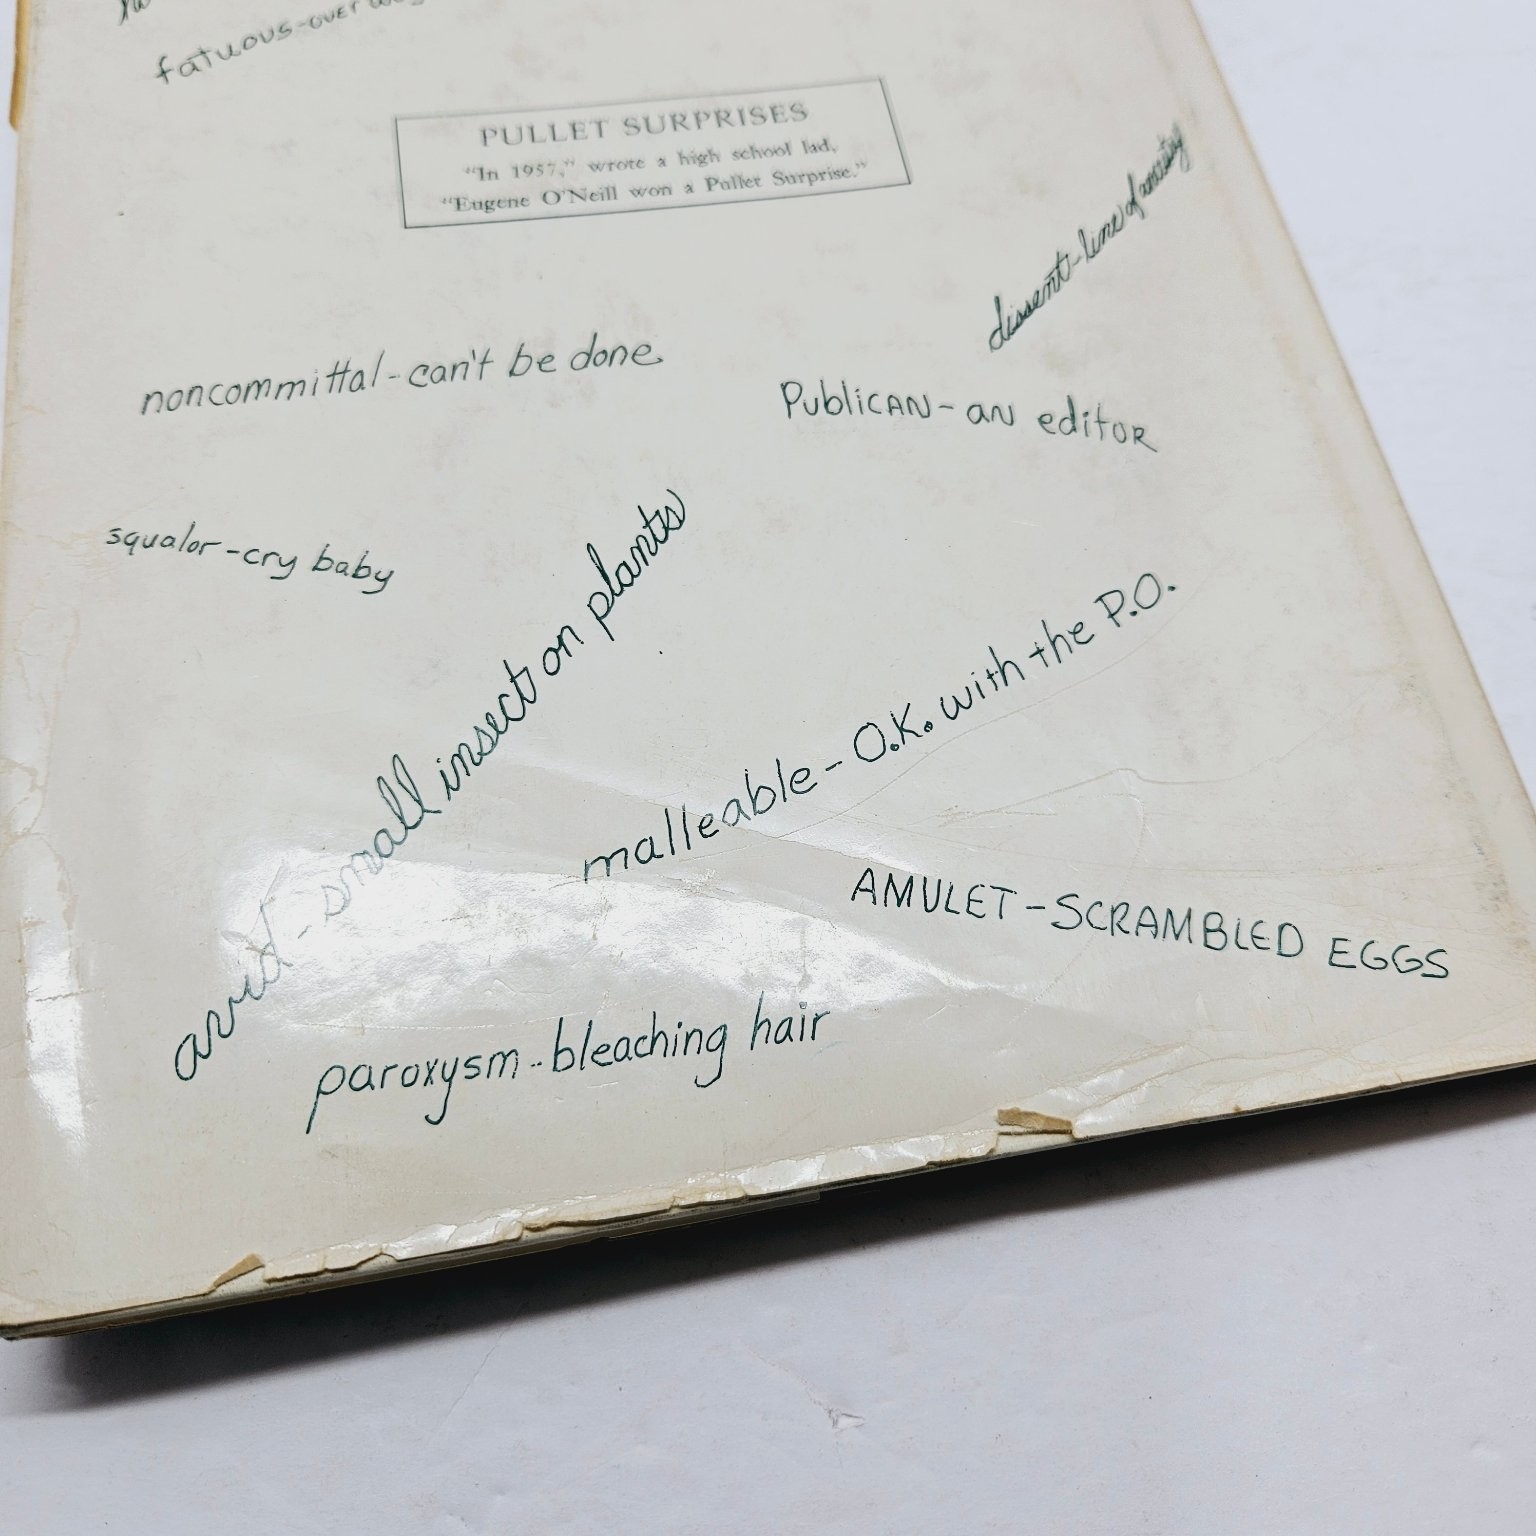 fatuous-over
PULLET SURPRISES
"In 1957," wrote a high school lad,
"Eugene O'Neill won a Pullet Surprise."
dissent-line of ancestry
noncommittal-can't be done
Publican-an editor
squalor-cry baby
avid-small insect on plants
malleable-O.K. with the P.O.
AMULET-SCRAMBLED EGGS
paroxysm-bleaching hair